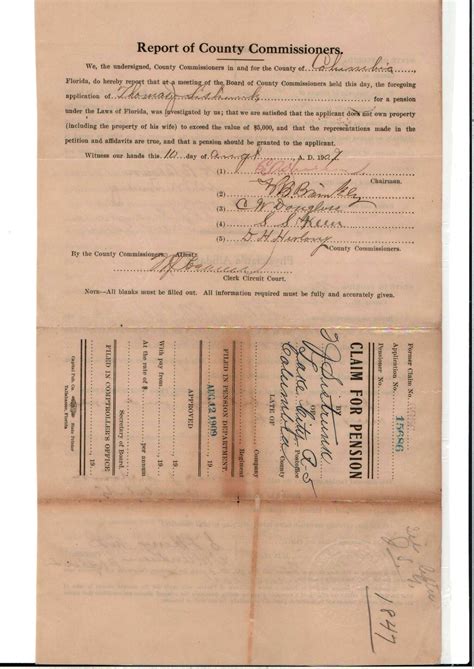 Report of County Commissioners.
We, the undersigned, County Commissioners in and for the County of Columbia,
Florida, do hereby report that at a meeting of the Board of County Commissioners held this day, the foregoing
application of Thomas J. Sistrunk for a pension
under the Laws of Florida, was investigated by us; that we are satisfied that the applicant does not own property
(including the property of his wife) to exceed the value of $5,000, and that the representations made in the
petition and affidavits are true, and that a pension should be granted to the applicant.
Witness our hands this 10 day of Aug A. D. 1909
(1)
Chairman.
(2) W B Brinkley
(3) C W Douglass
(4) S S Keen
(5)
County Commissioners.
By the County Commissioners, Attest:
Clerk Circuit Court.
Note—All blanks must be filled out. All information required must be fully and accurately given.
Former Claim No.
Application No. 15686
Pensioner No.
CLAIM FOR PENSION
BY
T J Sistrunk
OF
Lake City Postoffice
Columbia County
LATE OF
Company
Regiment
FILED IN PENSION DEPARTMENT.
AUG 12 1909
APPROVED
19
With pay from 19
At the rate of $
Secretary of Board.
FILED IN COMPTROLLER'S OFFICE
19
Capital Pub. Co. State Printer
Tallahassee, Florida
1847